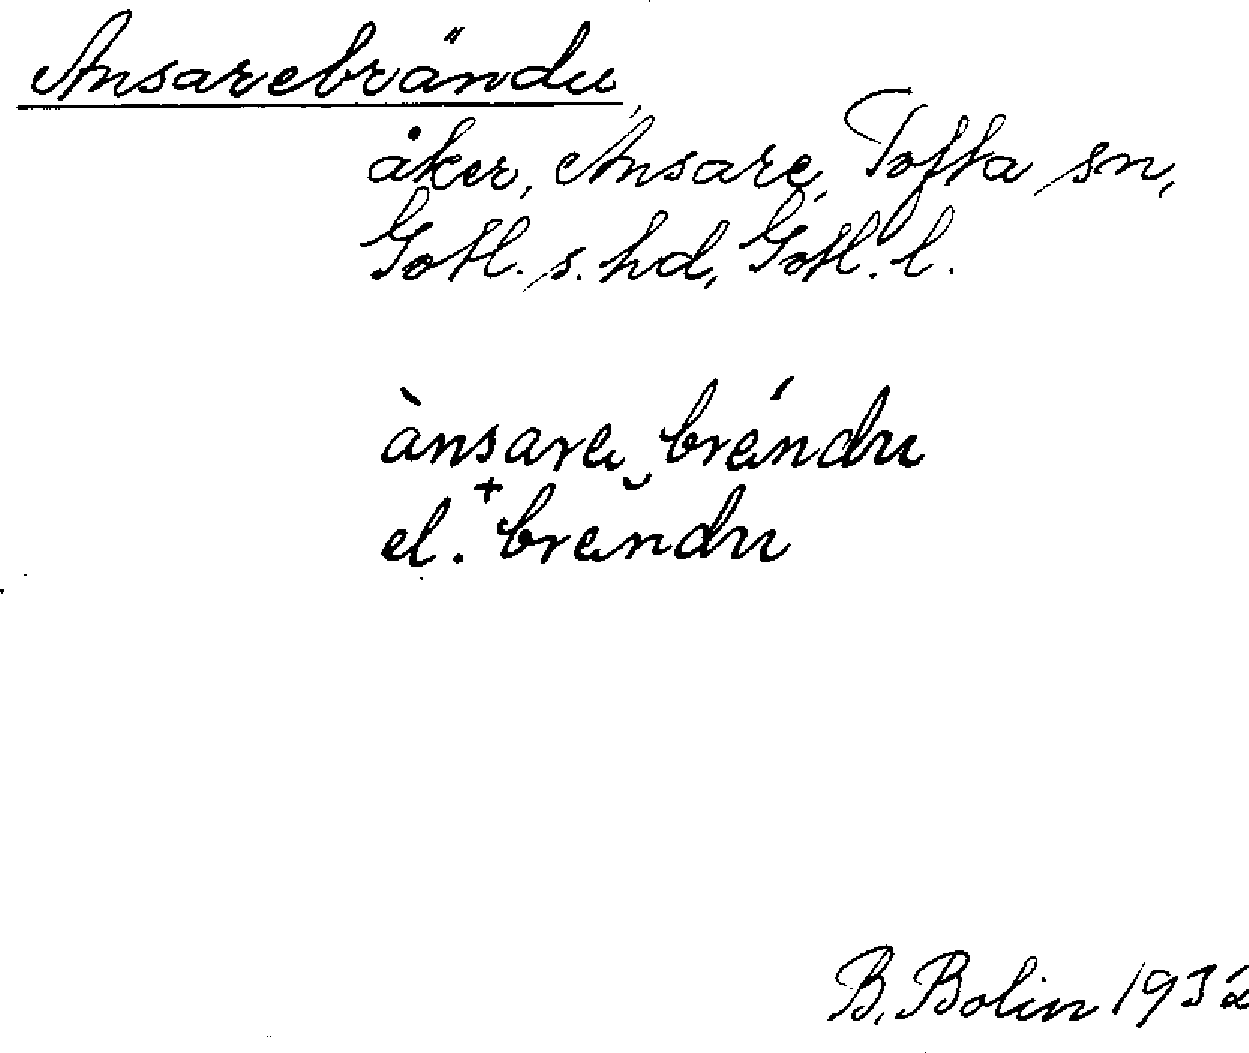 Ansarebrändu,
åker, Ansare, Tofta sn,
Gotl. s. hd, Gotl. l.
ànsare ̮ brándu
el. ⁺brändu
B. Bolin 1932